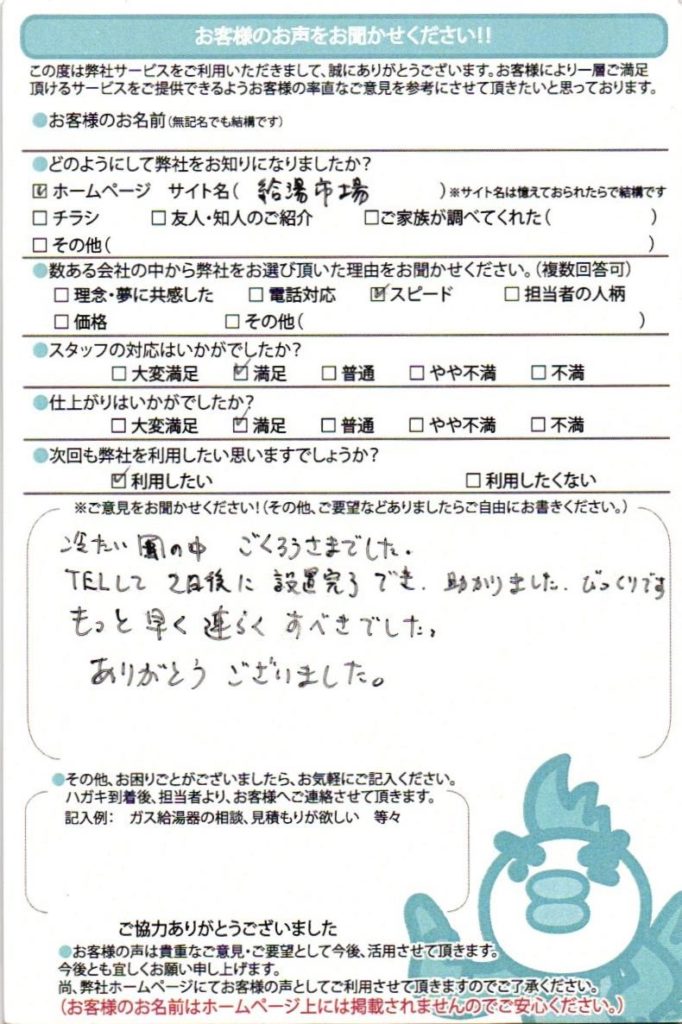 お客様のお声をお聞かせください!!
この度は弊社サービスをご利用いただきまして、誠にありがとうございます。お客様により一層ご満足
頂けるサービスをご提供できるようお客様の率直なご意見を参考にさせて頂きたいと思っております。
●お客様のお名前(無記名でも結構です)
●どのようにして弊社をお知りになりましたか?
☑ホームページ サイト名( 給湯市場 )※サイト名は憶えておられたらで結構です
□チラシ □友人・知人のご紹介 □ご家族が調べてくれた( )
□その他( )
●数ある会社の中から弊社をお選び頂いた理由をお聞かせください。(複数回答可)
□理念・夢に共感した □電話対応 ☑スピード □担当者の人柄
□価格 □その他( )
●スタッフの対応はいかがでしたか?
□大変満足 ☑満足 □普通 □やや不満 □不満
●仕上がりはいかがでしたか?
□大変満足 ☑満足 □普通 □やや不満 □不満
●次回も弊社を利用したい思いますでしょうか?
☑利用したい □利用したくない
※ご意見をお聞かせください!(その他、ご要望などありましたらご自由にお書きください。)
冷たい の中 ごくろうさまでした.
TELして 2日後に 設置完了 でき. 助かりました. びっくりです
もっと 早く 連らく すべきでした。
ありがとう ございました。
●その他、お困りごとがございましたら、お気軽にご記入ください。
ハガキ到着後、担当者より、お客様へご連絡させて頂きます。
記入例: ガス給湯器の相談、見積もりが欲しい 等々
ご協力ありがとうございました
●お客様の声は貴重なご意見・ご要望として今後、活用させて頂きます。
今後とも宜しくお願い申し上げます。
尚、弊社ホームページにてお客様の声としてご利用させて頂きますのでご了承ください。
(お客様のお名前はホームページ上には掲載されませんのでご安心ください。)